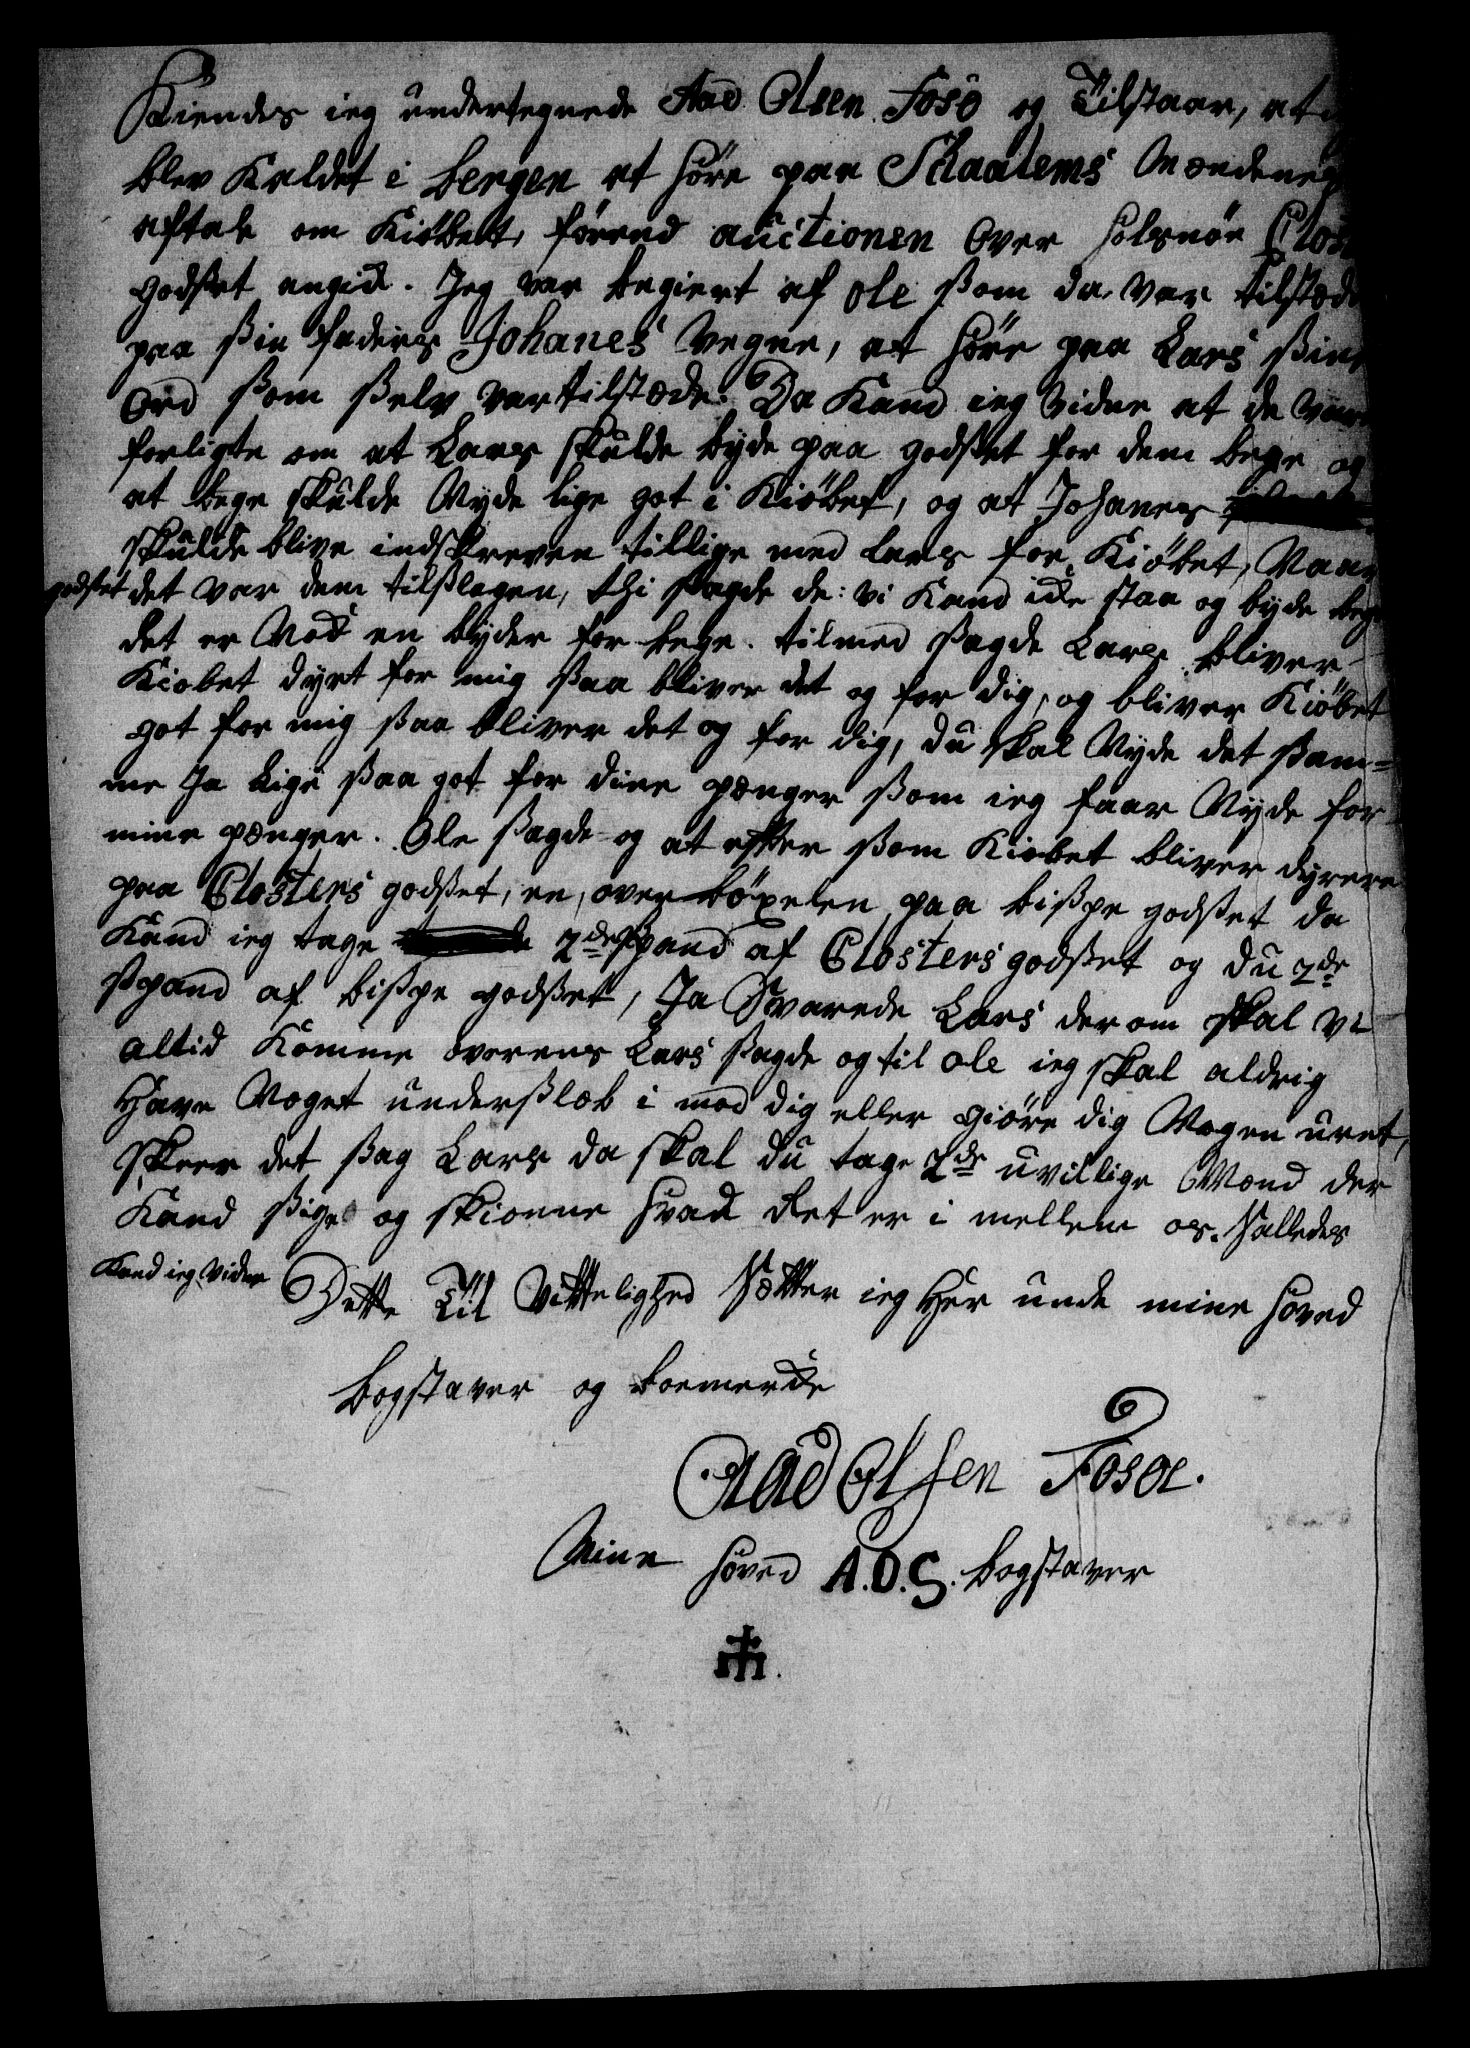 Kiendes ieg undertegnede Aad Olsen Fosö og Tilstaar, at
blev Kaldet i bergen at höre paa Skaalems Mændenes
aftale om Kiöbet, förend auctionen over Halsnöe Clost
godset angik. Jeg var begiert af ole ßom da var tilstæde
paa ßin faders Johanes Vegne, at höre paa Lars ßine
Ord ßom ßelv var tilstæde. Da Kand ieg vidne at de vare
forligte om at Lars skulde byde paa godßet for dem bege og
at bege skulde Nyde lige got i Kiöbet, og at Johanes
skulde blive indskreven tillige med Lars for Kiöbet, Naar
godßet det var dem tilßlagen, thi ßagde de: vi Kand icke staa og byde bege
det er Nock en byder for bege. tilmed ßagde Lars bliver
Kiobet dyrt for mig ßaa bliver det og for dig, og bliver Kiöbet
got for mig ßaa bliver det og for dig, du skal Nyde det ßam=
me Ja lige ßaa got for dine pænger ßom ieg faar Nyde for
mine pænger. Ole ßagde og at efter ßom Kiobet bliver dyrere
paa Closters godßet, en, over böxelen paa bißpe godßet da
Kand ieg tage 2de ßpand af Closters godßet og du 2de
ßpand af bißpe godßet, Ja Svarede Lars der om skal vi
altid Komme overens Lars ßagde og til ole ieg skal aldrig
Have Noget underßlæb i mod dig eller giöre dig Nogen uret,
skeer det ßag Lars da skal du tage 2de uvillige Mænd der
Kand ßige og skionne hvad det er i mellem os. Salledes
Kand ieg vidne
Dette Til Vitteligheed Sætter ieg Her unde mine hoved
bogstaver og boemercke
Aad Olsen Fosöe.
Mine hoved A.O.S. bogstaver